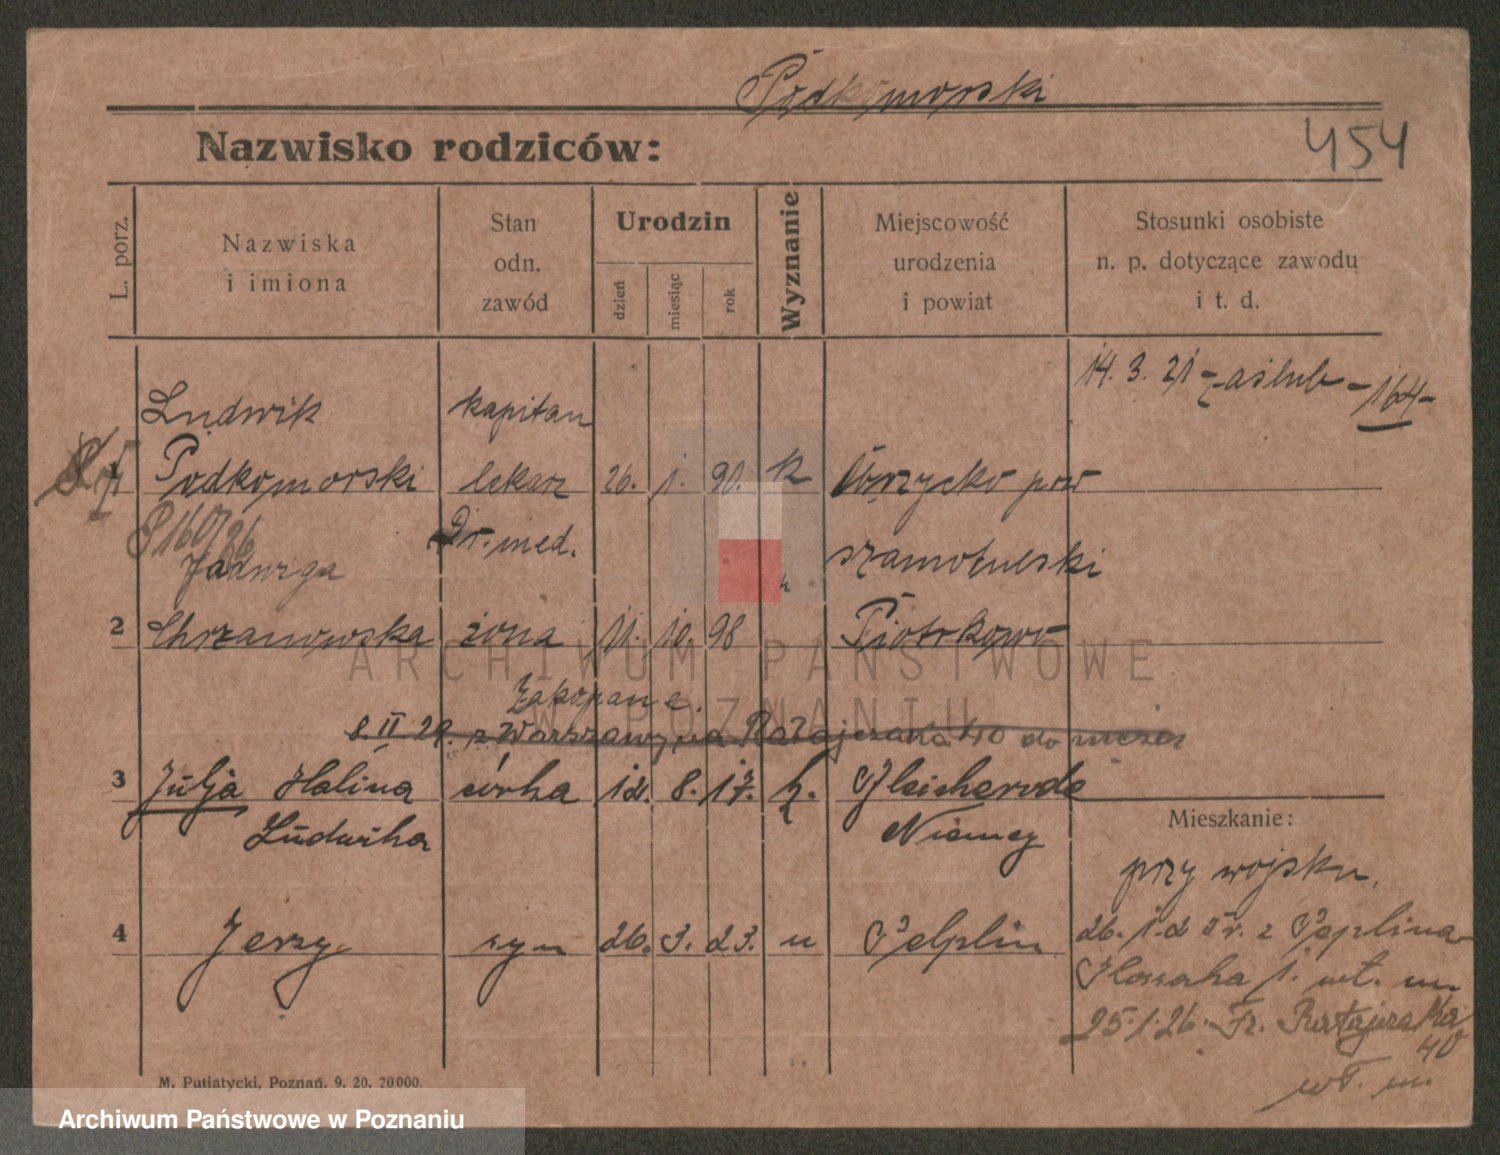 Podkomorski
Nazwisko rodziców:
454
L. porz.
Nazwiska
i imiona
Stan
odn.
zawód
Urodzin
dzień
miesiąc
rok
Wyznanie
Miejscowość
urodzenia
i powiat
Stosunki osobiste
n. p. dotyczące zawodu
i t. d.
14. 3. 21 - zaślub - 164 -
Ludwik kapitan
1 Podkomorski lekarz 26. 1. 90. k Obrzycko pow
Dr. med. szamotulski
Jadwiga
2 Chrzanowska żona 11. 10. 98 Piotrkowo
Zakopane.
8. II 29. z Warszawy, na Ratajczaka 40 do
3 Julja Halina córka 12. 8. 17. k. Bleicherode
Ludwika Niemcy
Mieszkanie:
przy wojsku.
4 Jerzy syn 26. 3. 23. u Pelplin
26. 1. 25 r. z Peplina
1. wł. m.
25. 1. 26. Fr. Ratajczaka
40
wł. m.
M. Putiatycki, Poznań. 9. 20. 20000.
ARCHIWUM PAŃSTWOWE
W POZNANIU
Archiwum Państwowe w Poznaniu